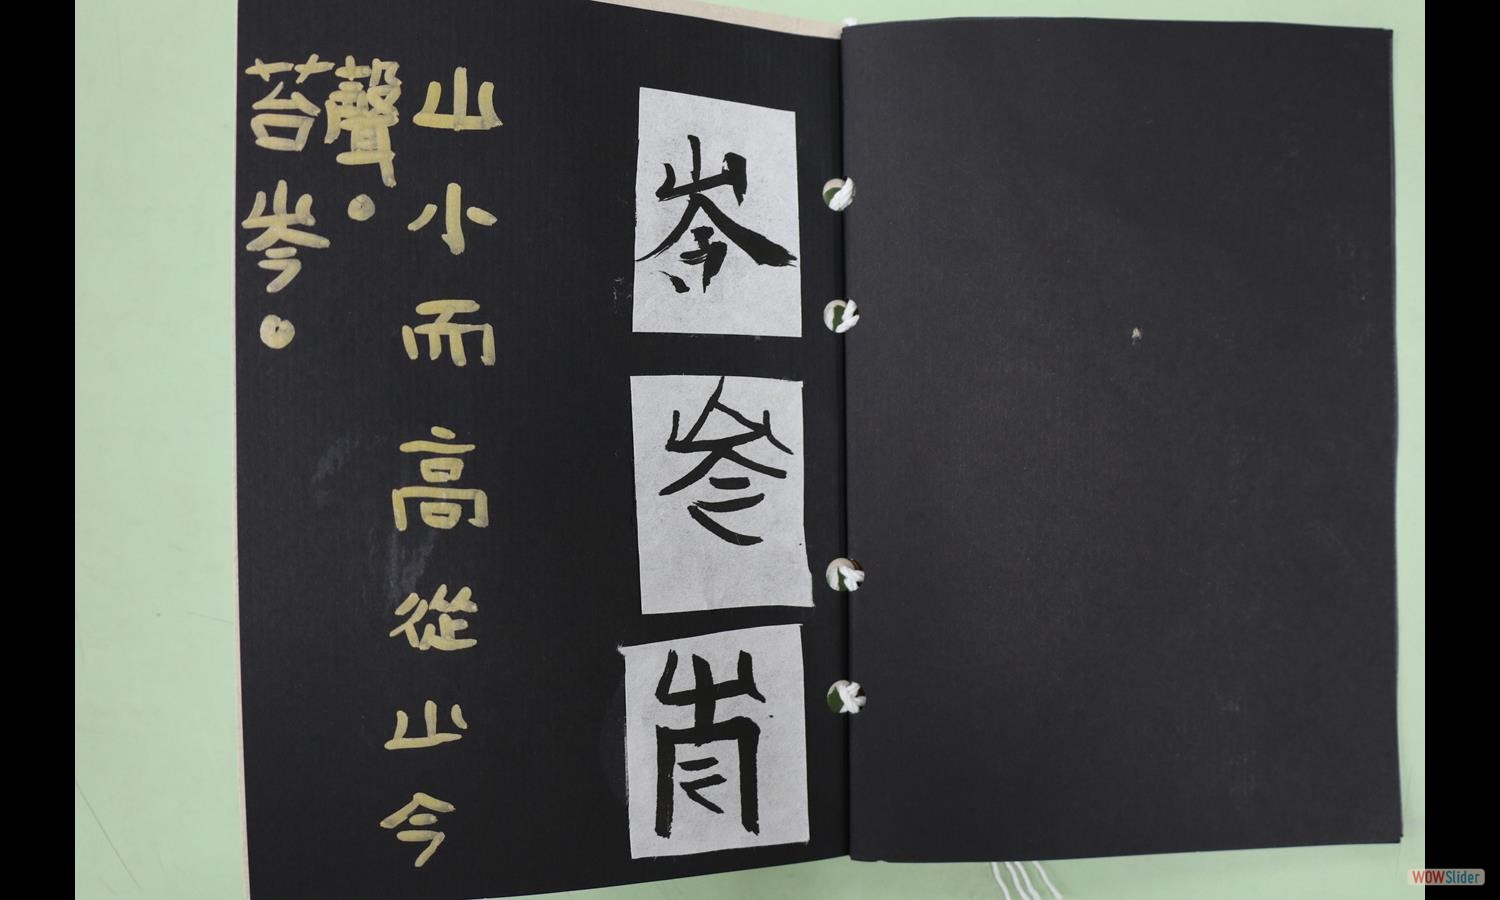 岑岑岑
山小而高從山今
聲。
苔岑。
WOWSlider